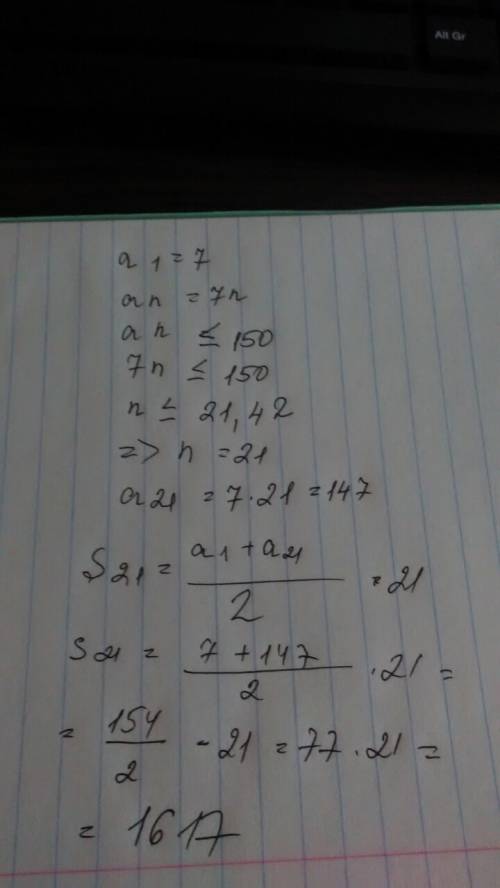 Alt Gr
a1 = 7
an = 7n
an ≤ 150
7n ≤ 150
n ≤ 21,42
=> n = 21
a21 = 7 · 21 = 147
S21 = (a1 + a21)/2 · 21
S21 = (7 + 147)/2 · 21 =
= 154/2 - 21 = 77 · 21 =
= 1617